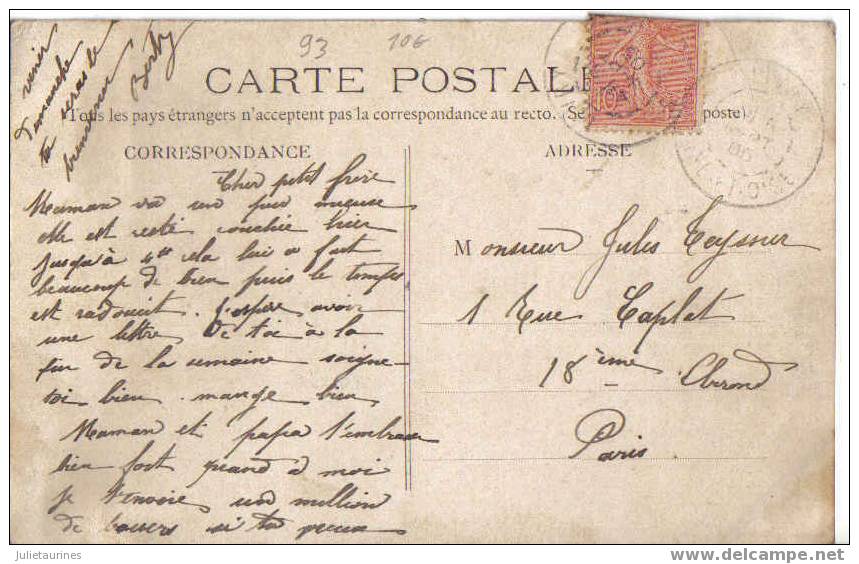 93
106
CARTE POSTALE
Tous les pays étrangers n'acceptent pas la correspondance au recto. (Se poste)
CORRESPONDANCE
ADRESSE
Cher petit frère
Maman va un peu mieux
elle est resté couchée hier
jusqu'à 4h cela lui a fait
beaucoup de bien puis le temps
est radoucit. J'espère avoir
une lettre de toi à la
fin de la semaine soigne
toi bien mange bien
Maman et papa t'embrasse
bien fort quand à moi
je t'envoie un million
de baisers si tu peux
venir
Dimanche
tu seras le
bienvenu
Monsieur Jules Teyssier
1 Rue Caplat
18ème
Paris
10
Julietaurines
www.delcampe.net